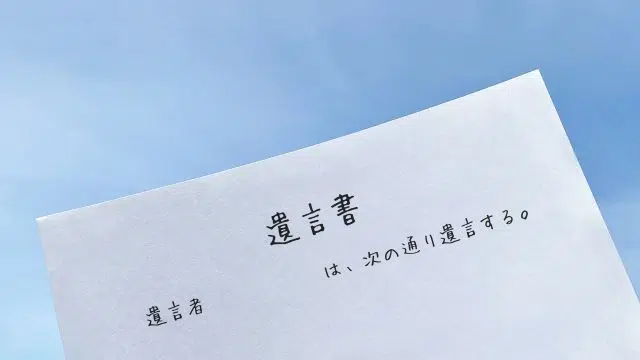 遺言書
遺言者　　　　　は、次の通り遺言する。